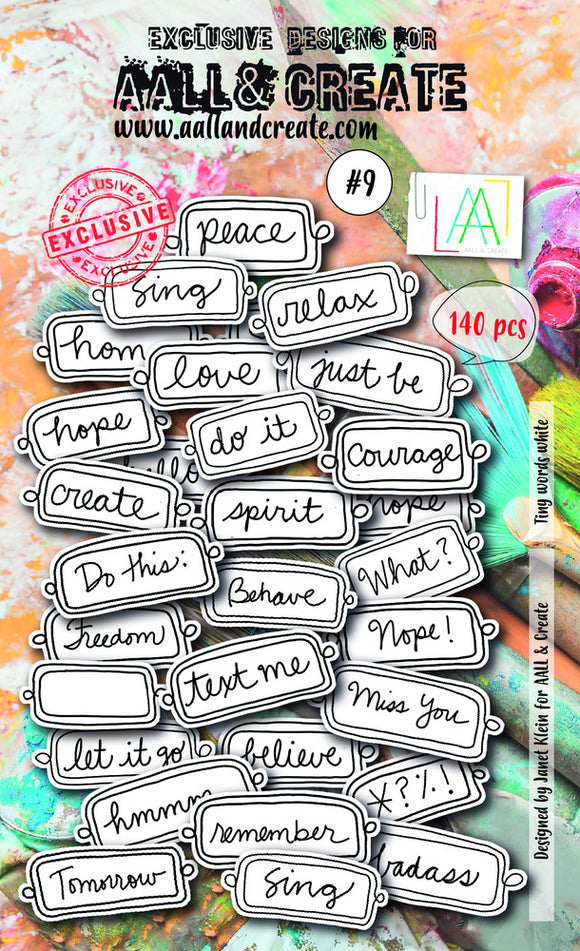 EXCLUSIVE DESIGNS FOR
AALL & CREATE
www.aallandcreate.com
#9
AA
AALL & CREATE
EXCLUSIVE
EXCLUSIVE
EXCLUSIVE
peace
sing
relax
140 pcs
hom
love
just be
hope
do it
courage
hello
create
spirit
hope
Tiny words white
Do this:
Behave
What?
Freedom
Nope!
text me
Miss You
let it go
believe
X?%!
hmmm
remember
badass
Tomorrow
Sing
Designed by Janet Klein for AALL & Create